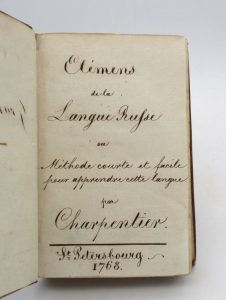 Elémens
de la
Langue Russe
ou
Méthode courte et facile
pour apprendre cette langue
par
Charpentier.
St. Petersbourg
1768.